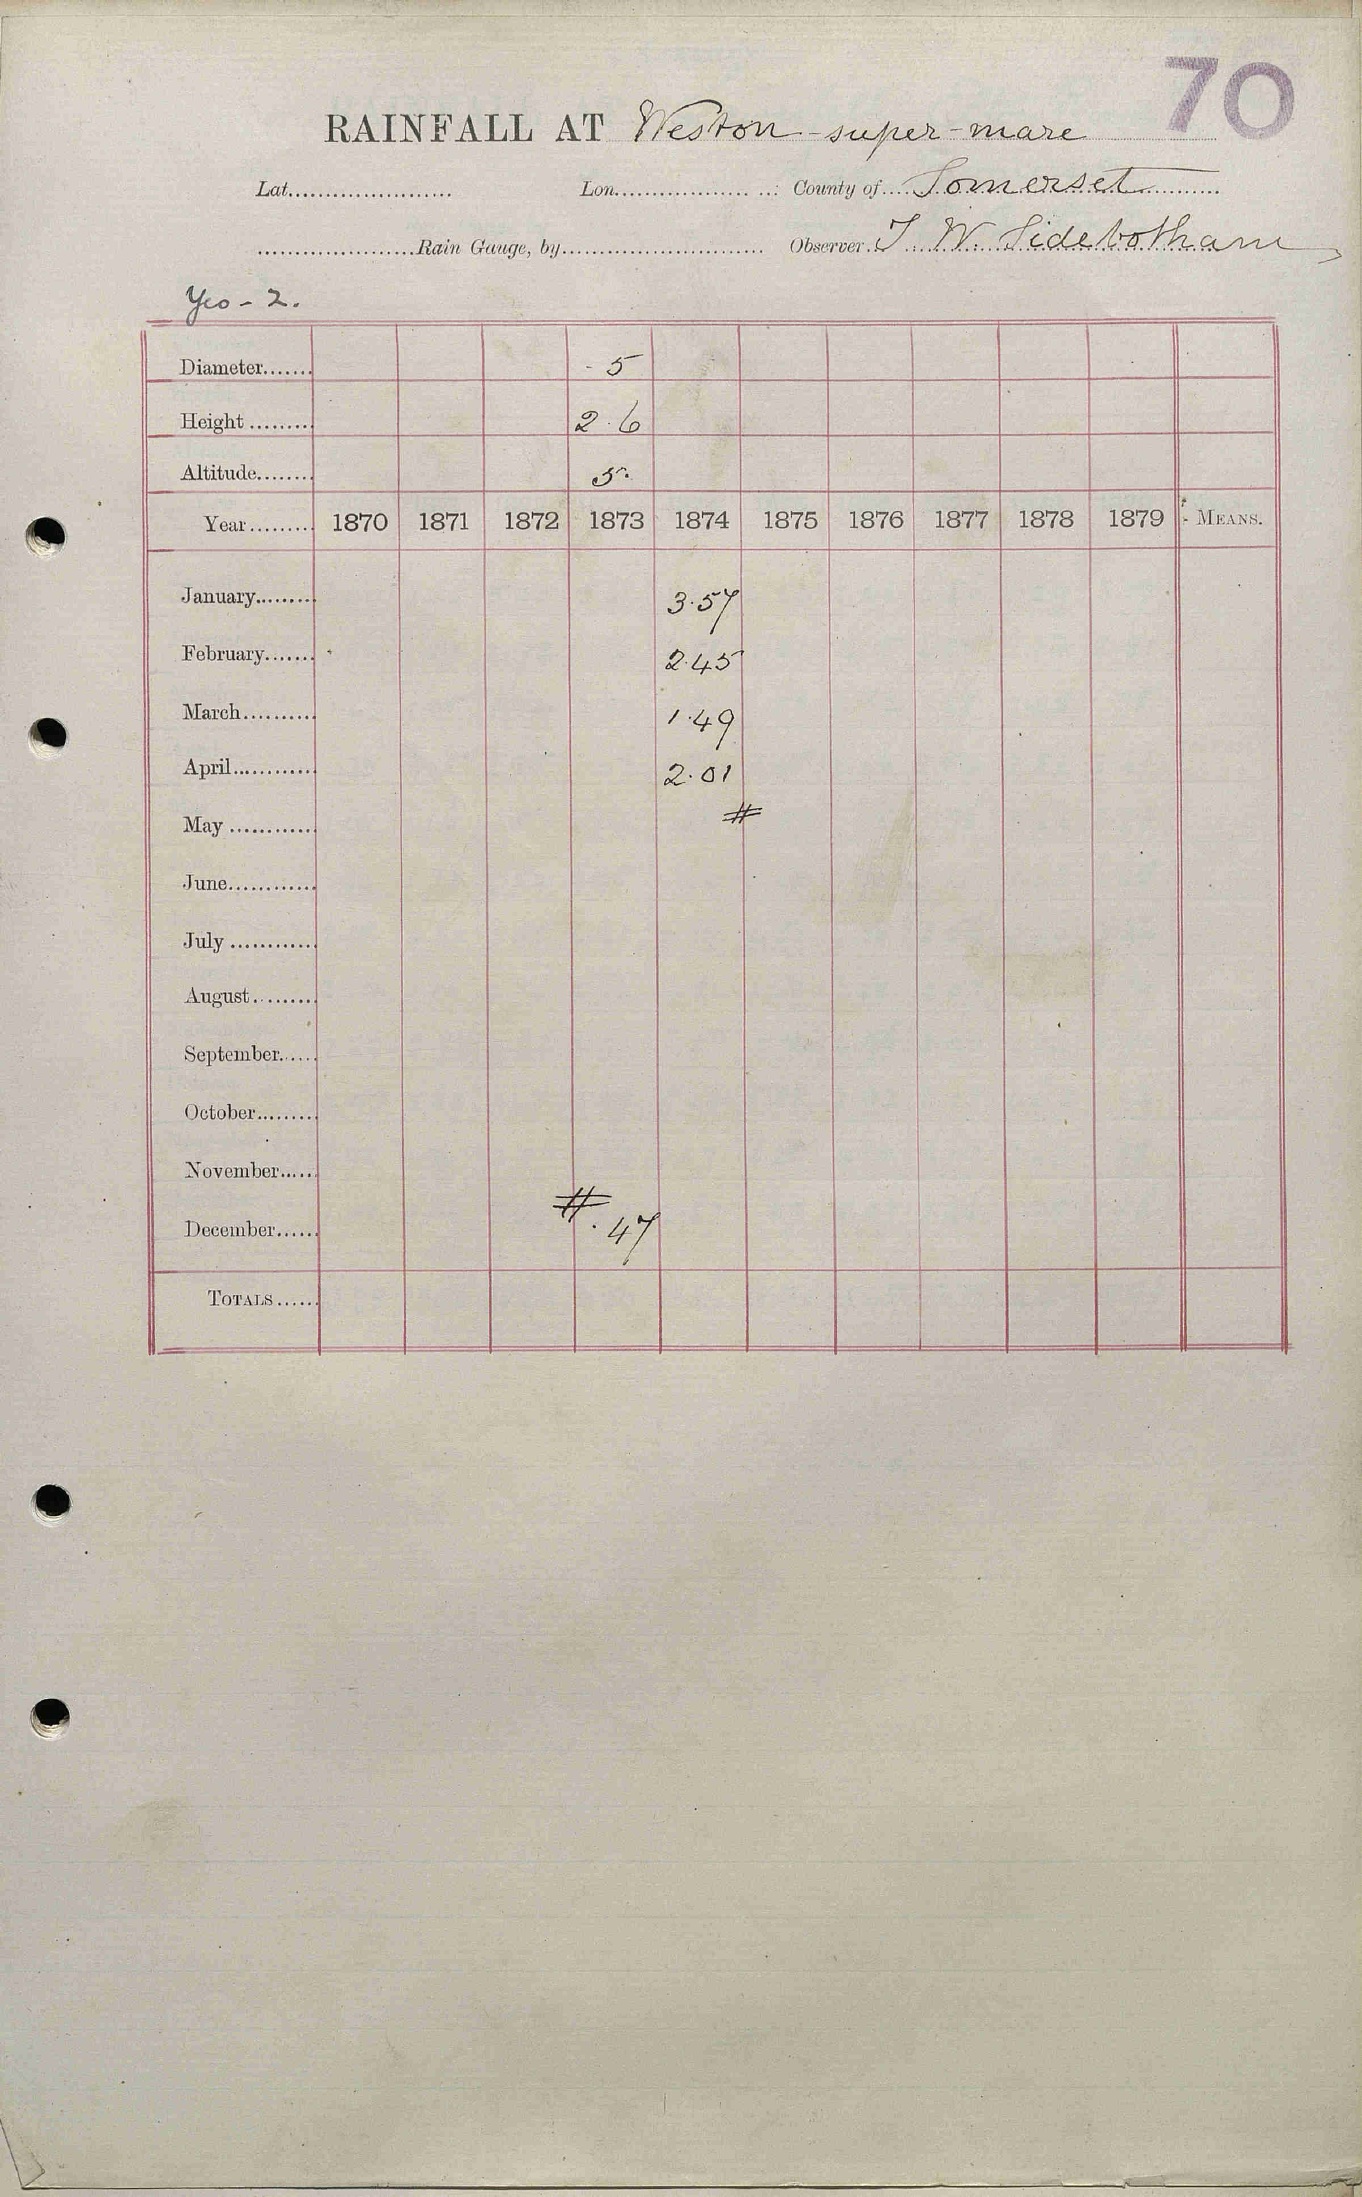 70
RAINFALL AT Weston-super-mare
Lat...................... Lon.................... County of Somerset
......................Rain Gauge, by........................... Observer. T. W. Sidebotham
Yeo - 2.
Diameter....... 5
Height......... 2.6
Altitude....... 5.
Year......... 1870 1871 1872 1873 1874 1875 1876 1877 1878 1879 MEANS.
January......... 3.57
February....... 2.45
March.......... 1.49
April............ 2.01
May ............ #
June............
July ............
August.........
September......
October.........
November...... #
December...... .47
TOTALS......